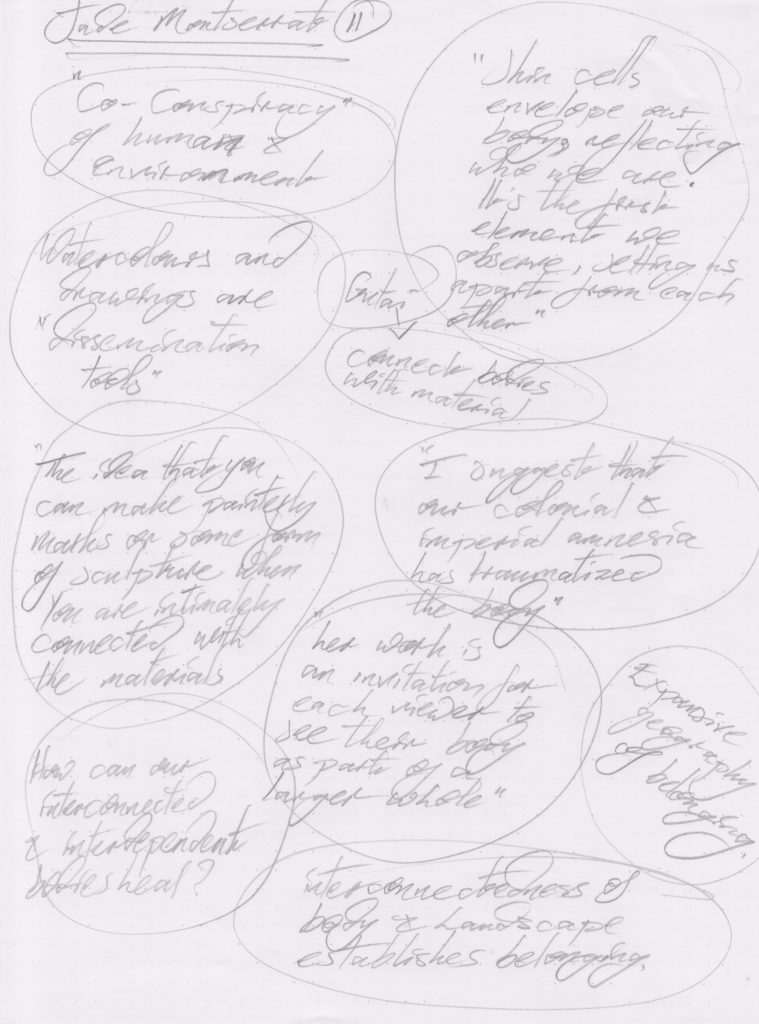 Jade Montserrat 11
"Co-Conspiracy"
of human &
environment
"Skin cells
envelope our
body, reflecting
who we are.
It's the first
element we
observe, setting us
apart from each
other"
Watercolours and
drawings are
"dissemination
tools"
Gutai
connect bodies
with material
"The idea that you
can make painterly
marks or some form
of sculpture when
you are intimately
connected with
the materials
"I suggest that
our colonial &
imperial amnesia
has traumatized
the body"
"her work is
an invitation for
each viewer to
see their body
as part of a
larger whole"
Expansive
geography
of belonging.
How can our
interconnected
& interdependent
bodies heal?
interconnectedness of
body & Landscape
establishes belonging.